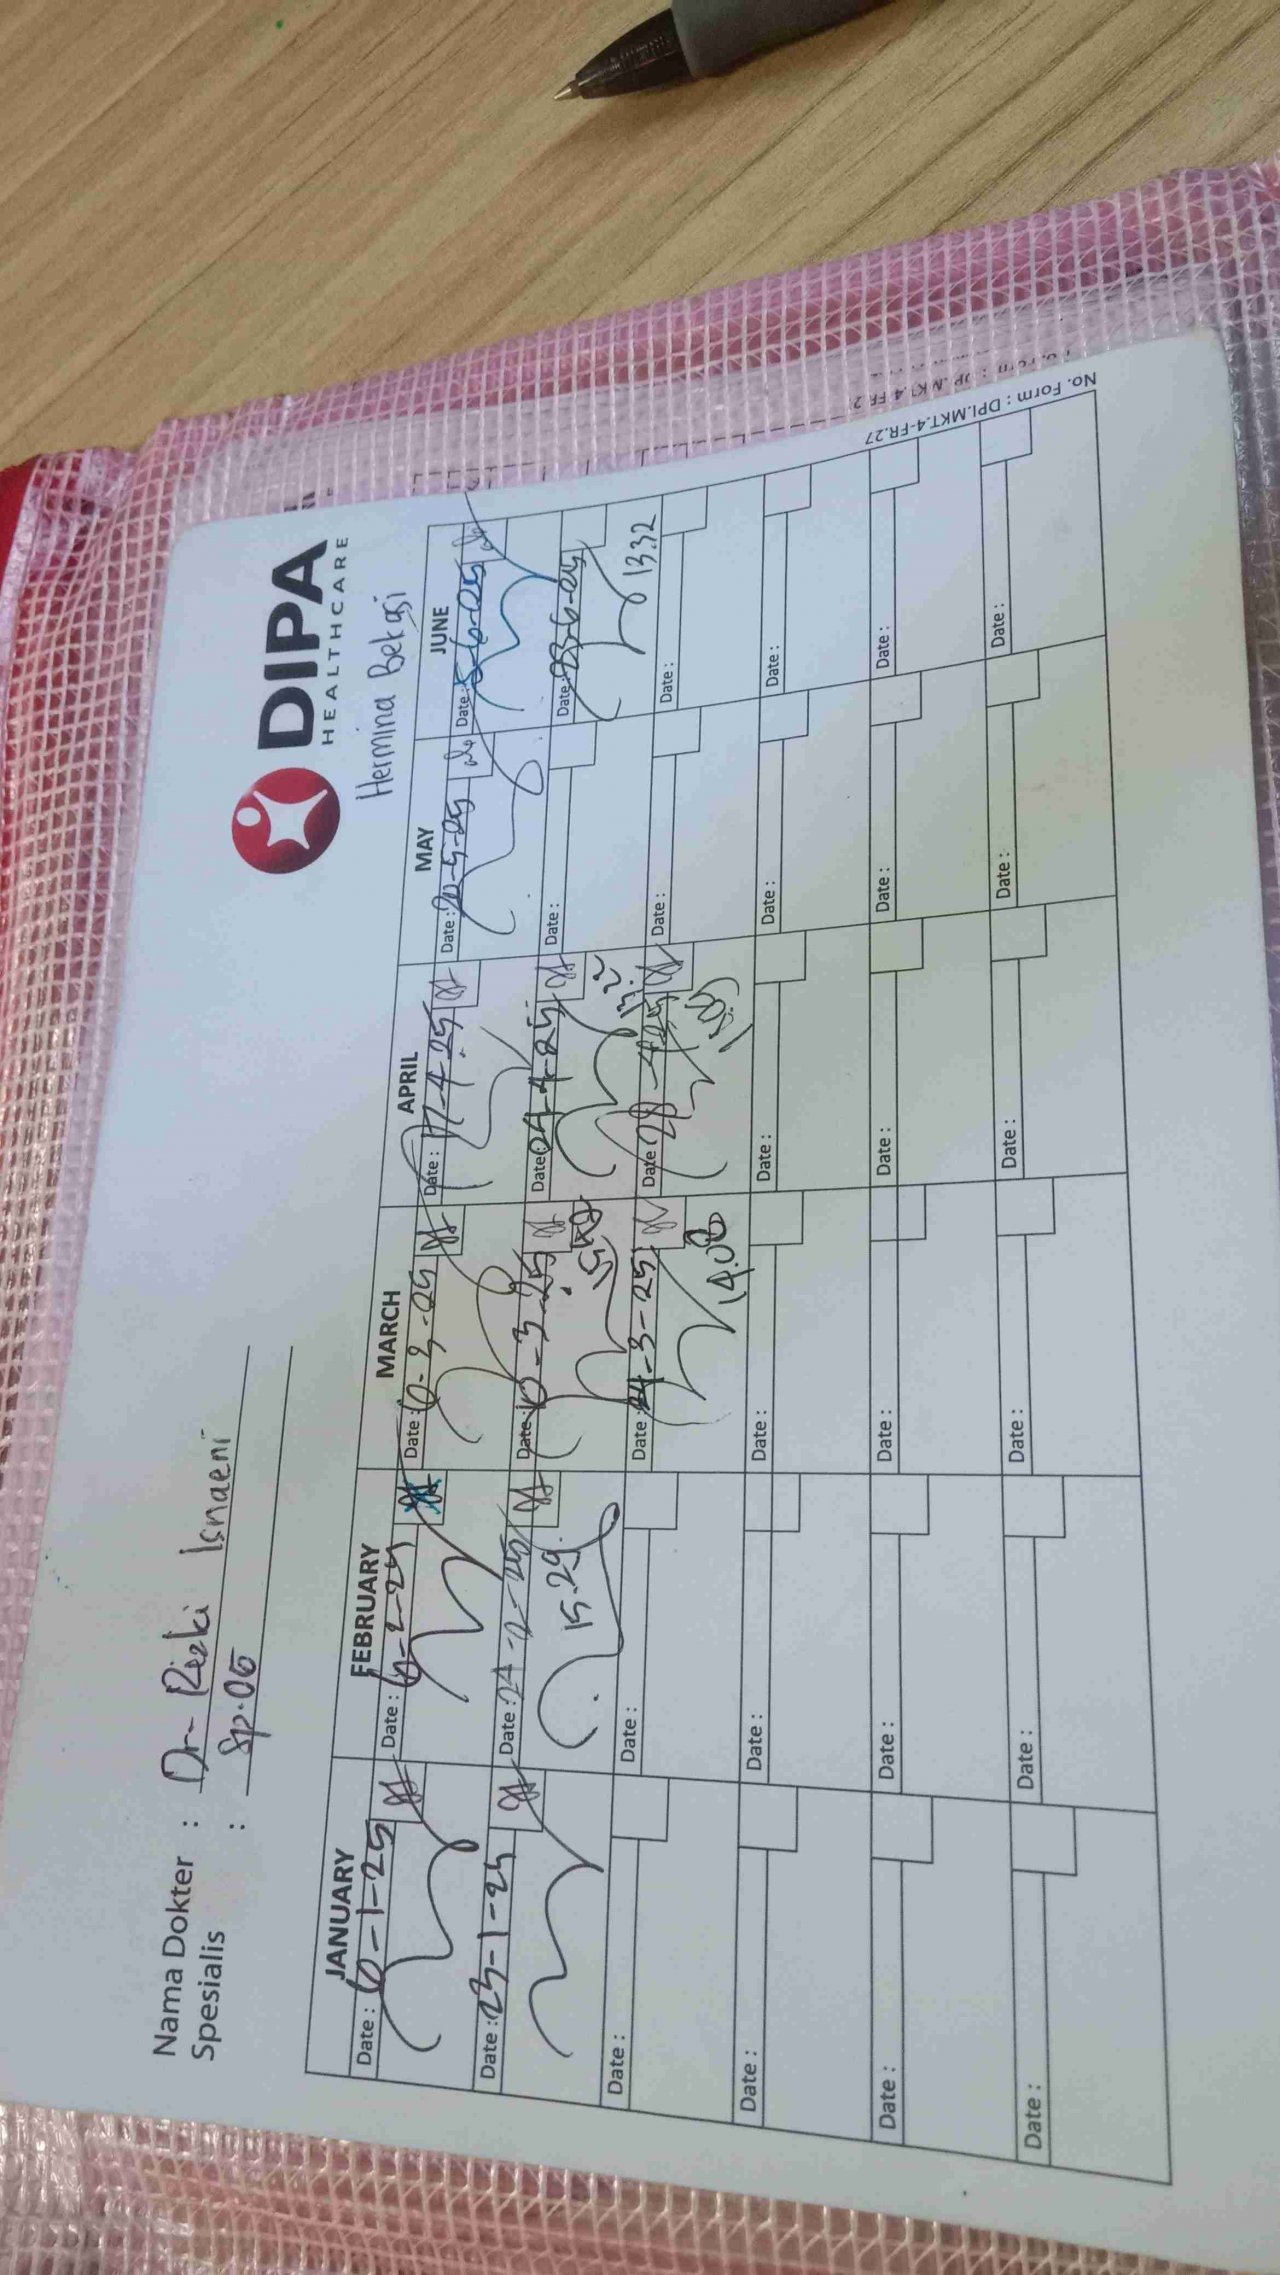 DIPA
HEALTHCARE
Hermina Bekasi
Nama Dokter : Dr. Rizki Isnaeni
Spesialis : Sp.OG
JANUARY FEBRUARY MARCH APRIL MAY JUNE
Date : 6-1-25 Date : 6-2-25 Date : 6-3-25 Date : 17-4-25 Date : 20-5-25 Date : 5-6-25
Date : 23-1-25 Date : 24-2-25 Date : 10-3-25 Date : 24-4-25 Date : Date : 23-6-25
15.29 13.32
Date : Date : Date : 24-3-25 Date : 28-4-25 Date : Date :
14.08
Date : Date : Date : Date : Date : Date :
Date : Date : Date : Date : Date : Date :
Date : Date : Date : Date : Date : Date :
No. Form : DPI.MKT.4-FR.27